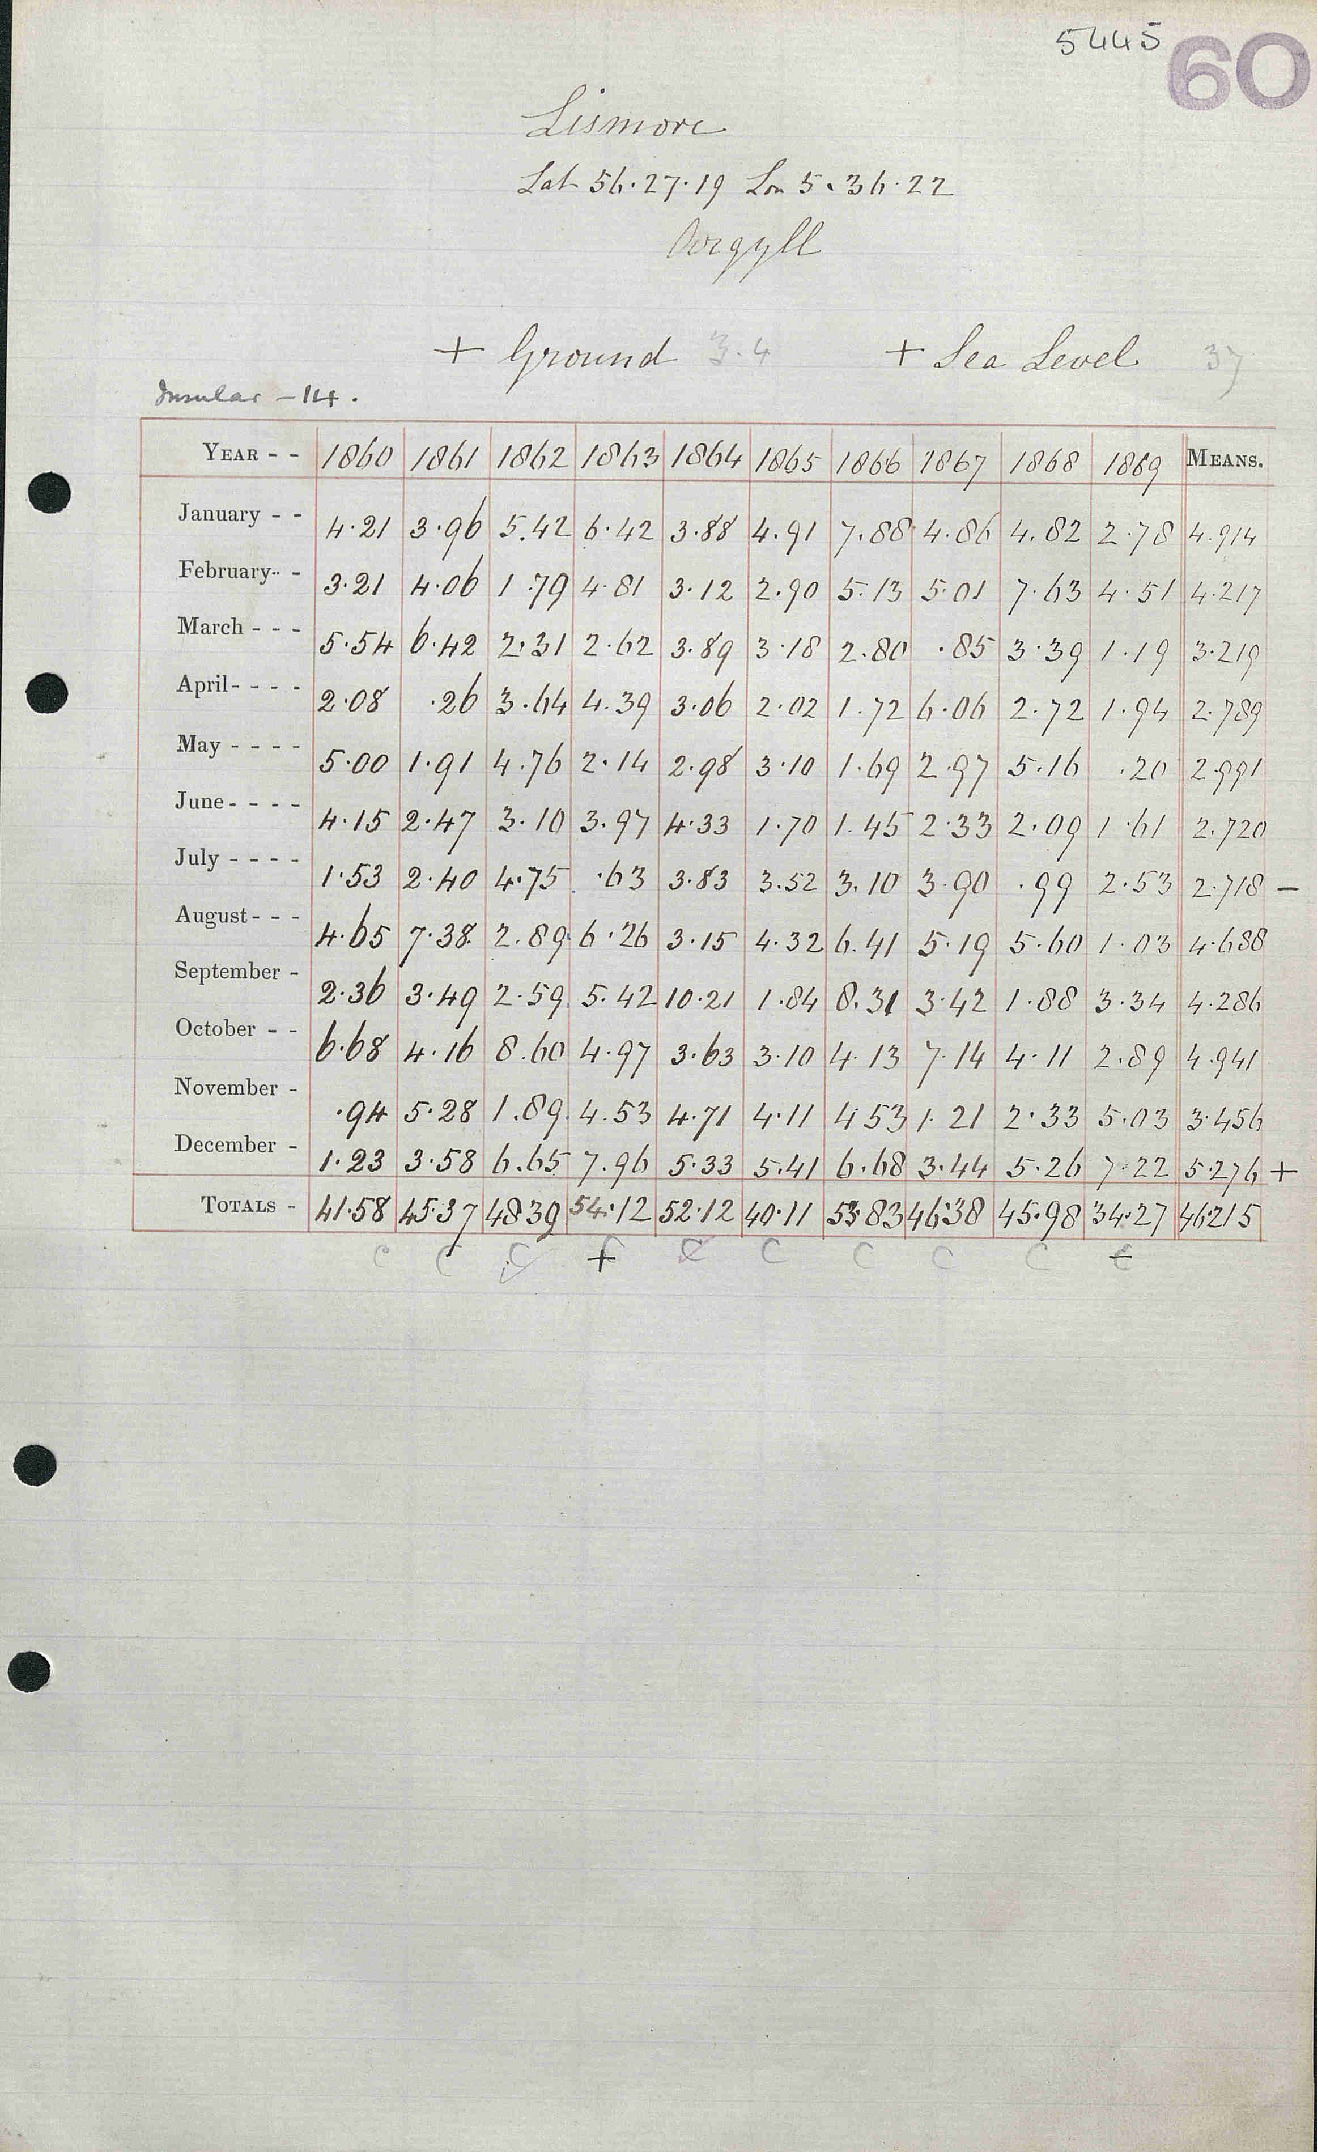 5445 60
Lismore
Lat 56.27.19 Lon 5.36.22
Argyll
+ Ground 3.4 + Sea Level 37
Insular - 14.
YEAR - - 1860 1861 1862 1863 1864 1865 1866 1867 1868 1869 MEANS.
January - - 4.21 3.96 5.42 6.42 3.88 4.91 7.88 4.86 4.82 2.78 4.914
February - - 3.21 4.06 1.79 4.81 3.12 2.90 5.13 5.01 7.63 4.51 4.217
March - - - 5.54 6.42 2.31 2.62 3.89 3.18 2.80 .85 3.39 1.19 3.219
April - - - - 2.08 .26 3.64 4.39 3.06 2.02 1.72 6.06 2.72 1.94 2.789
May - - - - 5.00 1.91 4.76 2.14 2.98 3.10 1.69 2.97 5.16 .20 2.991
June - - - - 4.15 2.47 3.10 3.97 4.33 1.70 1.45 2.33 2.09 1.61 2.720
July - - - - 1.53 2.40 4.75 .63 3.83 3.52 3.10 3.90 .99 2.53 2.718 -
August - - - 4.65 7.38 2.89 6.26 3.15 4.32 6.41 5.19 5.60 1.03 4.688
September - 2.36 3.49 2.59 5.42 10.21 1.84 8.31 3.42 1.88 3.34 4.286
October - - 6.68 4.16 8.60 4.97 3.63 3.10 4.13 7.14 4.11 2.89 4.941
November - .94 5.28 1.89 4.53 4.71 4.11 4.53 1.21 2.33 5.03 3.456
December - 1.23 3.58 6.65 7.96 5.33 5.41 6.68 3.44 5.26 7.22 5.276 +
TOTALS - 41.58 45.37 48.39 54.12 52.12 40.11 53.83 46.38 45.98 34.27 46.215
c c c + c c c c c c